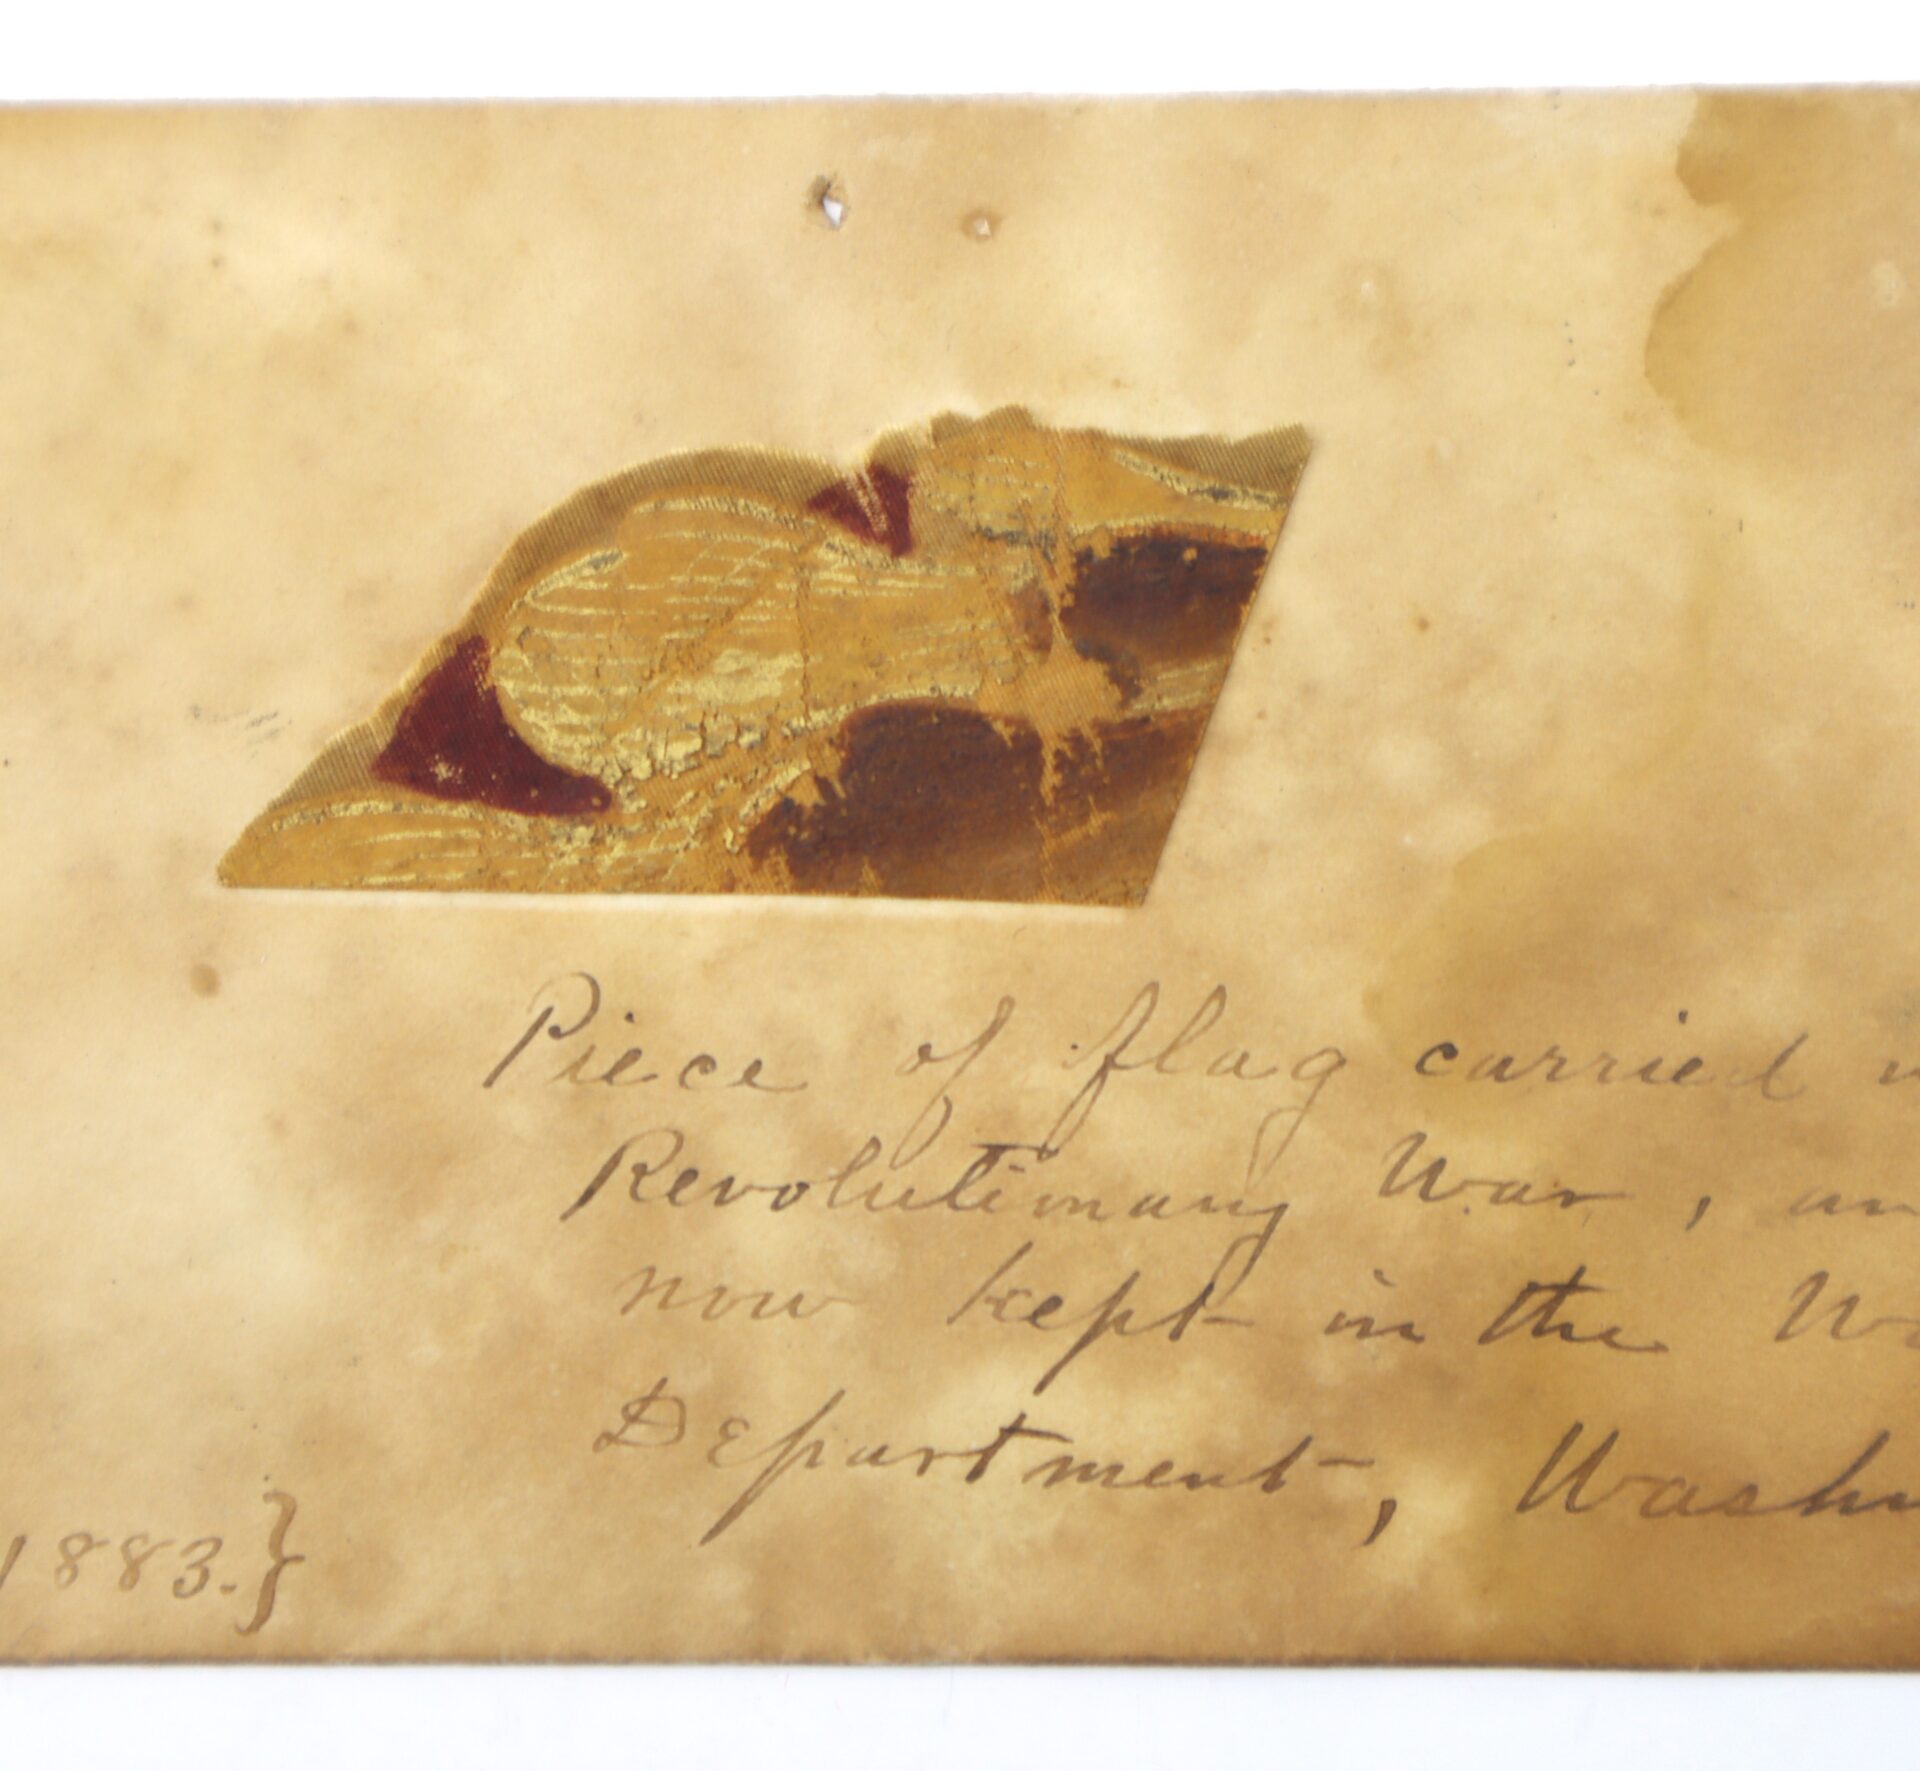 Piece of flag carried
Revolutionary War, an
now kept in the
Department, Washin
1883.}